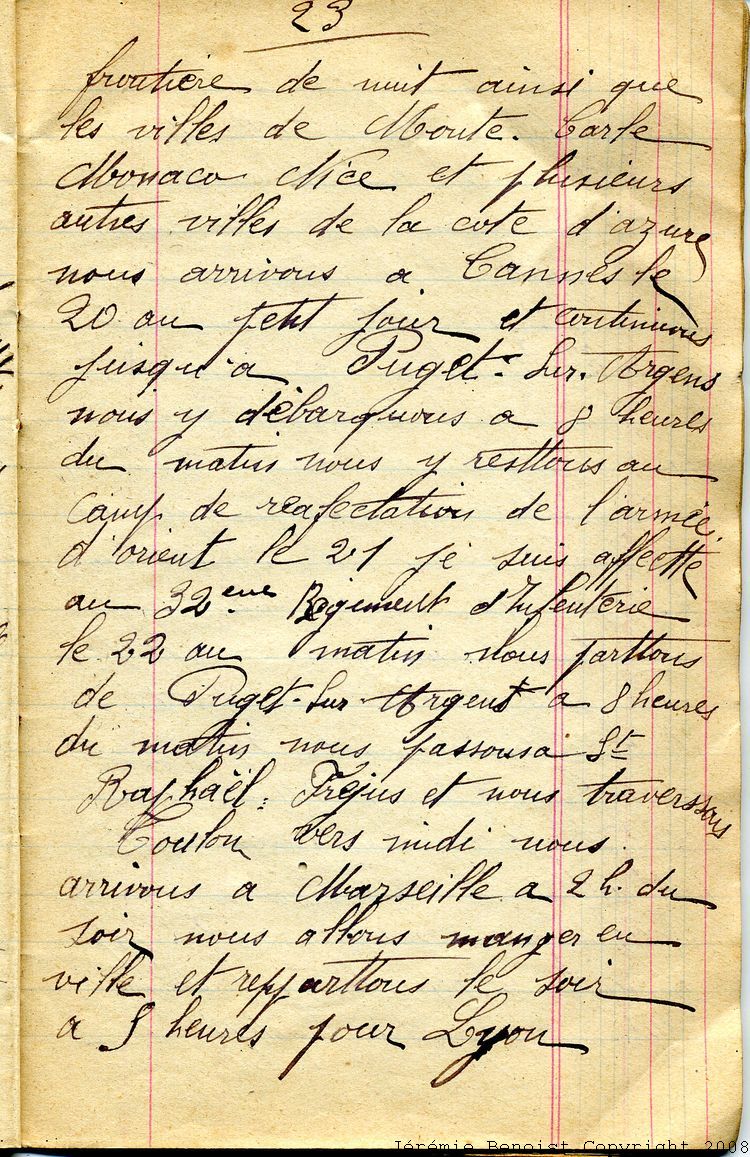 23
frontière de nuit ainsi que
les villes de Monte-Carle
Monaco Nice et plusieurs
autres villes de la cote d'azure
nous arrivons a Cannes le
20 au petit jour et continuons
jusqu'a Puget-Sur-Argens
nous y débarquons a 8 heures
du matin nous y resttons au
camp de réafectation de l'armée
d'orient le 21 je suis affectté
au 32eme Régiment d'Infenterie
le 22 au matin Nous parttons
de Puget-Sur Argens a 8 heures
du matin nous passons a St
Raphaël. Fréjus et nous traverssons
Toulon vers midi nous
arrivons a Marseille a 2 h. du
soir nous allons manger en
ville et repparttons le soir
a 8 heures pour Lyon
Jérémie Benoist Copyright 2008